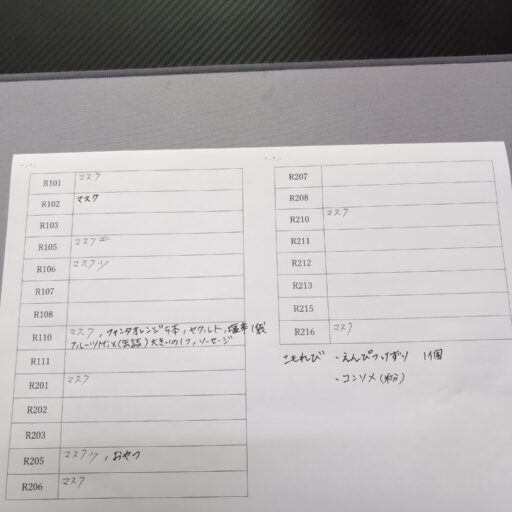 R101 マスク
R102 マスク
R103
R105 マスク
R106 マスク
R107
R108
R110 マスク, ファンタオレンジ5本, ヤクルト, 塩辛1袋
フルーツMix(缶詰)大きいの1つ, ソーセージ
R111
R201 マスク
R202
R203
R205 マスク, おやつ
R206 マスク
R207
R208
R210 マスク
R211
R212
R213
R215
R216 マスク
こもれび ・えんぴつけずり 1個
・コンソメ(粉)